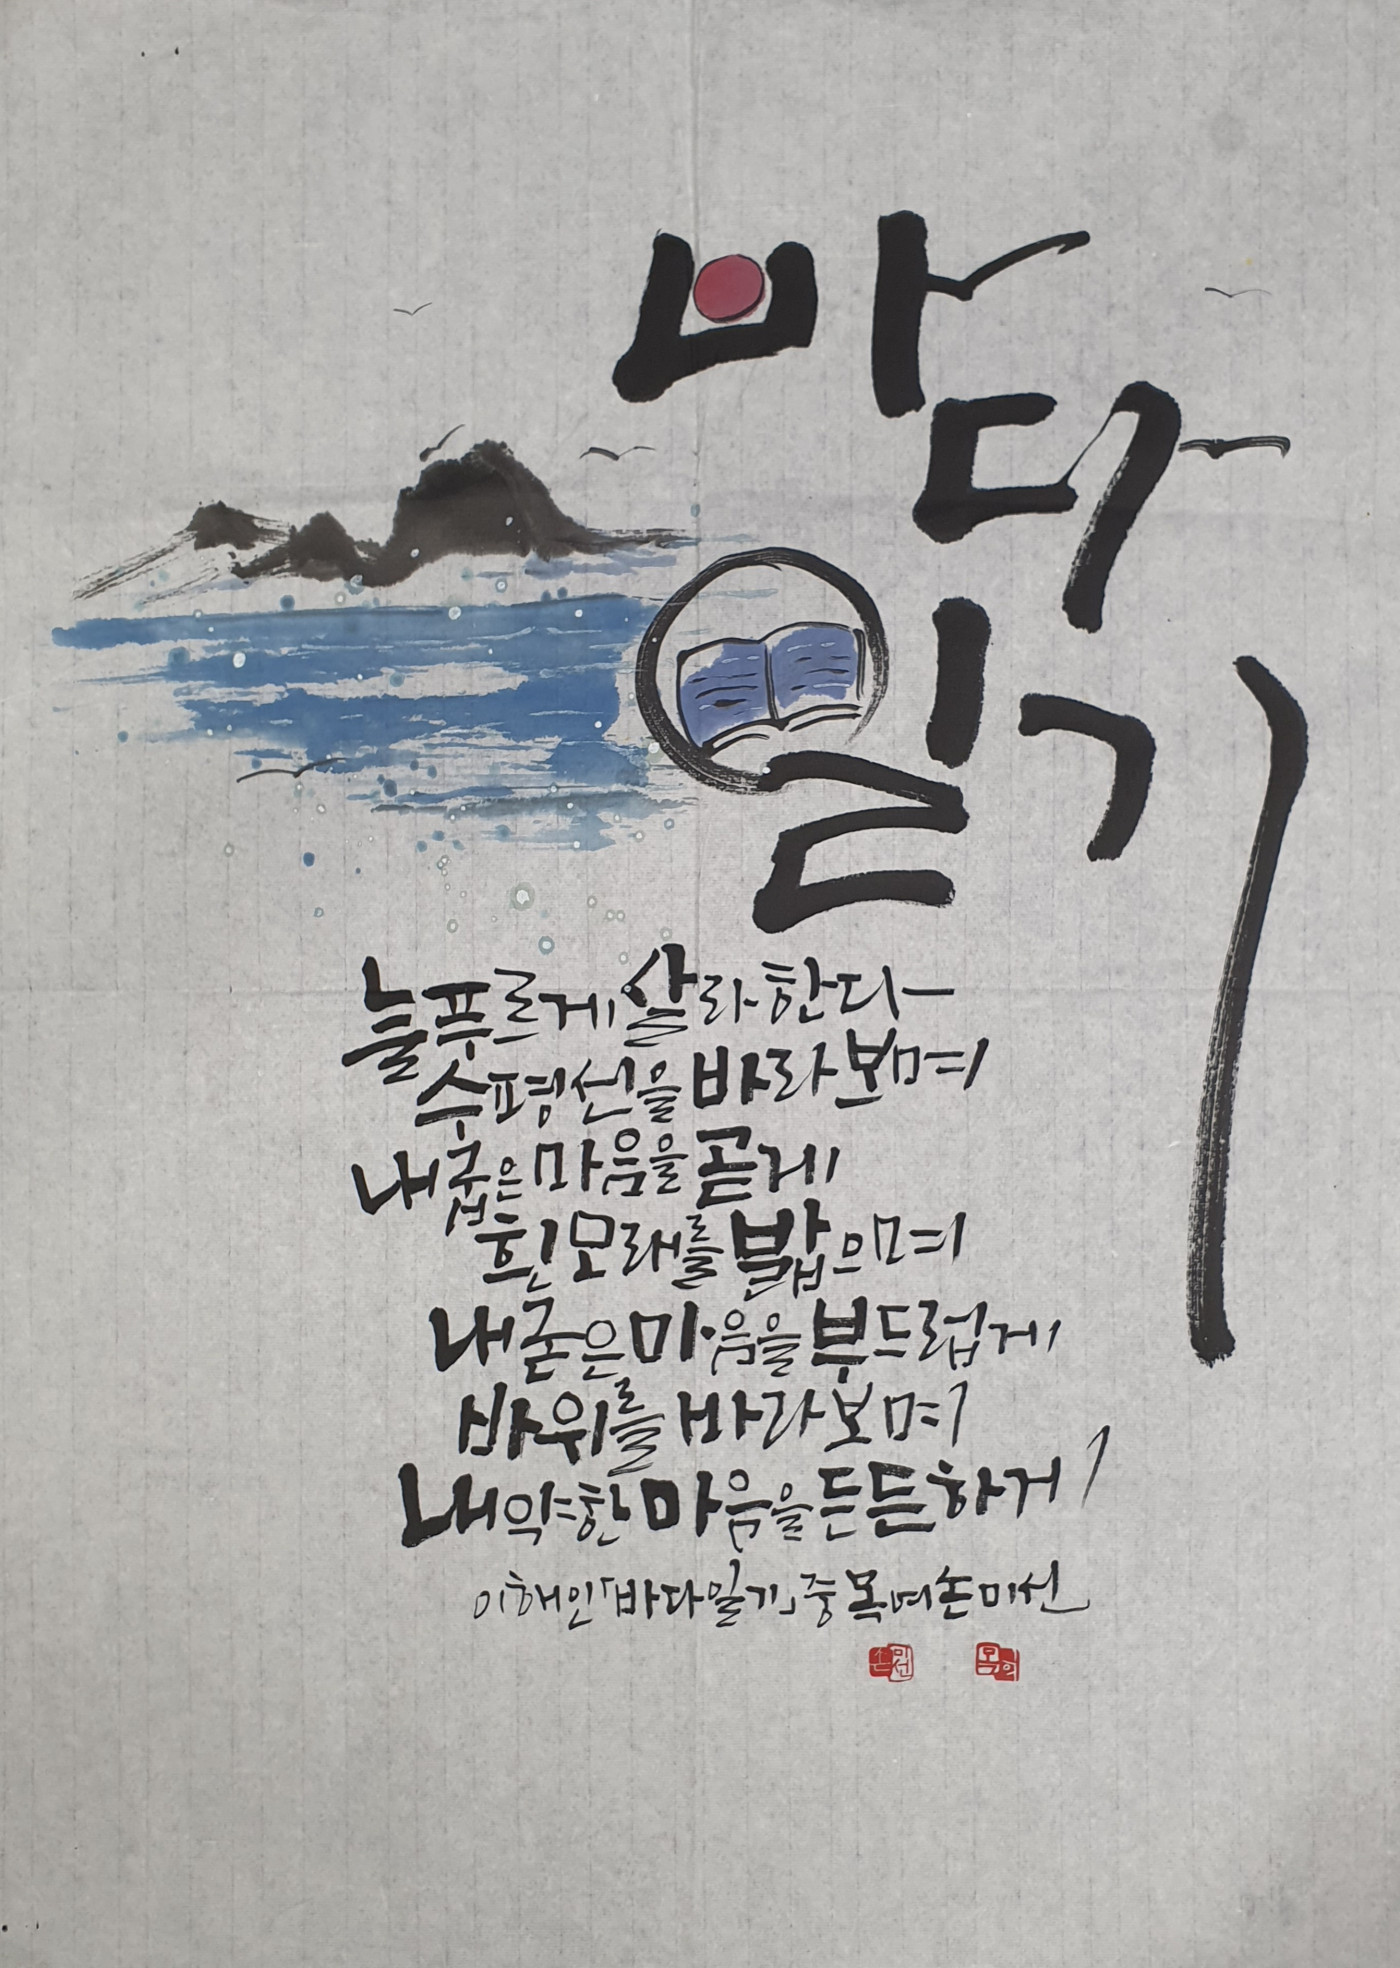 바다
일기
늘 푸르게 살라 한다
수평선을 바라보며
내 굽은 마음을 곧게
흰 모래를 밟으며
내 굳은 마음을 부드럽게
바위를 바라보며
내 약한 마음을 든든하게
이해인「바다일기」중 목여 손미선
손미선